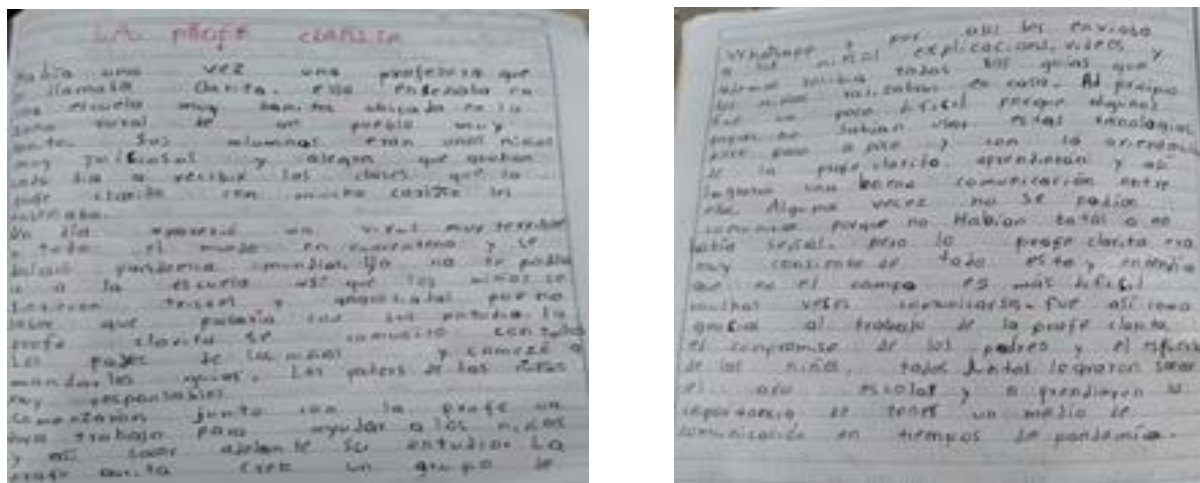 LA PROFE CLARITA
Había una vez una profesora que
llamaba Clarita. ella enseñaba en
una escuela muy bonita ubicada en la
zona rural de un pueblo muy
Sus alumnos eran unos niños
muy y alegres que
cada día a recibir las clases que la
profe clarita con mucho cariño les
enseñaba.
Un día apareció un virus muy terrible
y todo el mundo en cuarentena y se
pandemia mundial. Ya no se podía
ir a la escuela así que los niños se
tristes y angustiados por no
saber que pasaría con sus estudios. la
profe clarita se comunicó con todos
los padres de los niños y comezó a
mandarles guías. Los padres de los niños
muy responsables
comenzaron junto con la profe un
trabajo para ayudar a los niños
y así sacar adelante su estudios. La
profe clarita creo un grupo de
Whatsapp y por allí les enviaba
a los niños explicaciones, videos y
además recibía todas las guías que
los niños realizaban en casa. Al
fue un poco difícil porque algunos
papas no sabían usar estas tecnologías
poco a poco y con la
de la profe clarita aprendieron y así
lograron una buena comunicación entre
ellos. Alguna vecez no se podían
comunicar porque no Habían datos o no
había señal. pero la profe clarita era
muy consiente de todo esto y entendía
que en el campo es más difícil
muchas veces comunicarse. fue así como
gracias al trabajo de la profe clarita,
el compromiso de los padres y el
de los niños, todos juntos lograron sacar
el año escolar y aprendieron la
importancia de tener un medio de
comunicación en tiempos de pandemia.